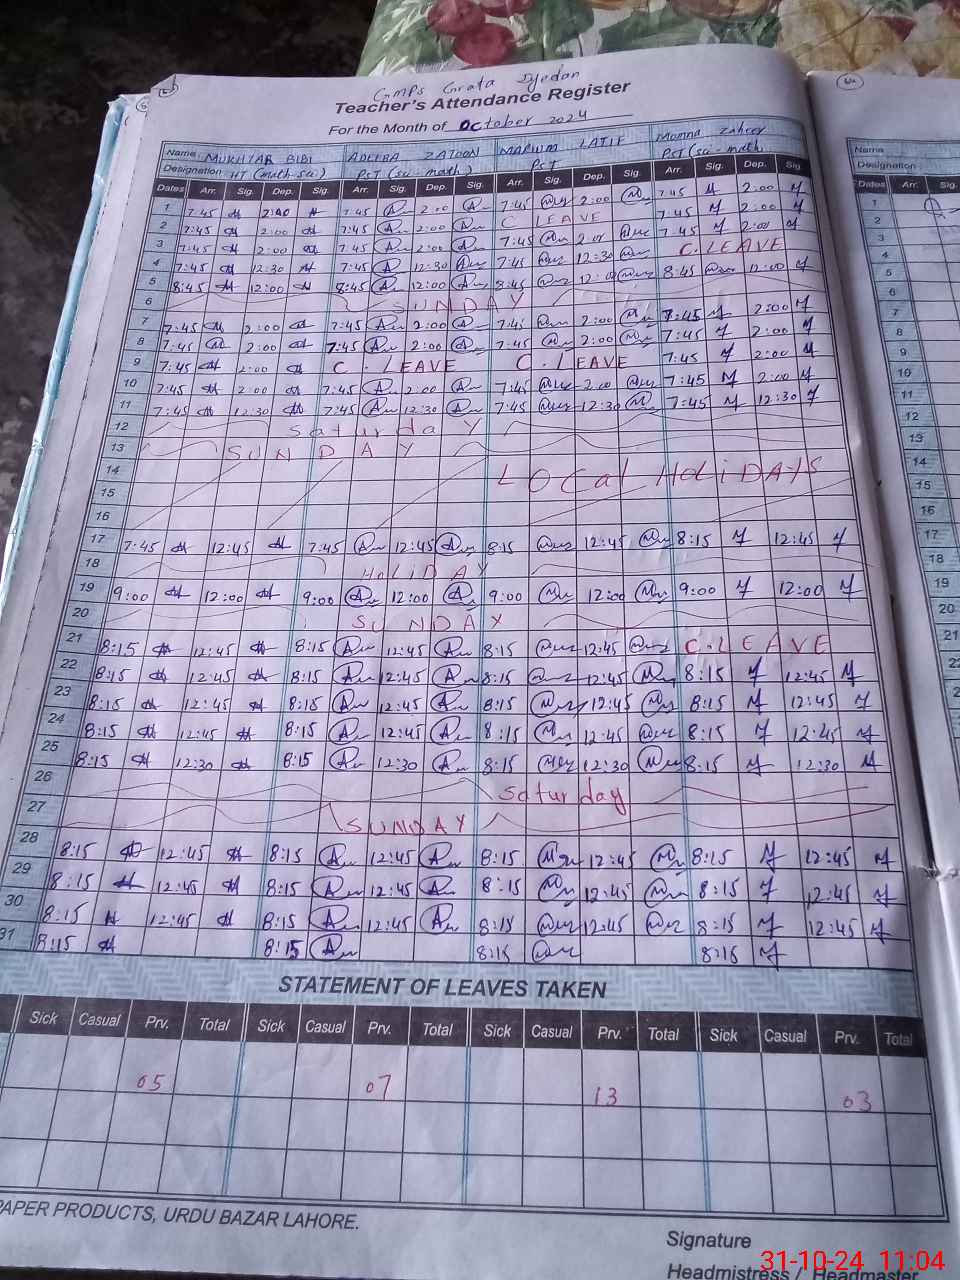 GMPS Grata
Teacher's Attendance Register
For the Month of October 2024
Name MUKHTAR BIBI ADEEBA ZATOON MARIUM LATIF Momna Zaheer
Designation HT (math-sci) PST (sci-math) PCT PCT (sci-math)
Dates Arr. Sig. Dep. Sig. Arr. Sig. Dep. Sig. Arr. Sig. Dep. Sig. Arr. Sig. Dep. Sig.
1 7:45 2:00 7:45 2:00 7:45 2:00 7:45 2:00
2 7:45 2:00 7:45 2:00 C LEAVE 7:45 2:00
3 7:45 2:00 7:45 2:00 7:45 2:00 7:45 2:00
4 7:45 12:30 7:45 12:30 7:45 12:30 C.LEAVE
5 8:45 12:00 8:45 12:00 8:45 12:00 8:45 12:00
6 SUNDAY
7 7:45 2:00 7:45 2:00 7:45 2:00 7:45 2:00
8 7:45 2:00 7:45 2:00 7:45 2:00 7:45 2:00
9 7:45 2:00 C. LEAVE C. LEAVE 7:45 2:00
10 7:45 2:00 7:45 2:00 7:45 2:00 7:45 2:00
11 7:45 12:30 7:45 12:30 7:45 12:30 7:45 12:30
12 Saturday
13 SUNDAY
14 LOCal HoLiDAYS
15
16
17 7:45 12:45 7:45 12:45 8:15 12:45 8:15 12:45
18 HoLiDAY
19 9:00 12:00 9:00 12:00 9:00 12:00 9:00 12:00
20 SUNDAY
21 8:15 12:45 8:15 12:45 8:15 12:45 C.LEAVE
22 8:15 12:45 8:15 12:45 8:15 12:45 8:15 12:45
23 8:15 12:45 8:15 12:45 8:15 12:45 8:15 12:45
24 8:15 12:45 8:15 12:45 8:15 12:45 8:15 12:45
25 8:15 12:30 8:15 12:30 8:15 12:30 8:15 12:30
26 Saturday
27 SUNDAY
28 8:15 12:45 8:15 12:45 8:15 12:45 8:15 12:45
29 8:15 12:45 8:15 12:45 8:15 12:45 8:15 12:45
30 8:15 12:45 8:15 12:45 8:15 12:45 8:15 12:45
31 8:15 8:15 8:15 8:15
STATEMENT OF LEAVES TAKEN
Sick Casual Prv. Total Sick Casual Prv. Total Sick Casual Prv. Total Sick Casual Prv. Total
05 07 13 03
PAPER PRODUCTS, URDU BAZAR LAHORE.
Signature
Headmistress / Headmaster
31-10-24 11:04
Name
Designation
Dates Arr. Sig.
1
2
3
4
5
6
7
8
9
10
11
12
13
14
15
16
17
18
19
20
21